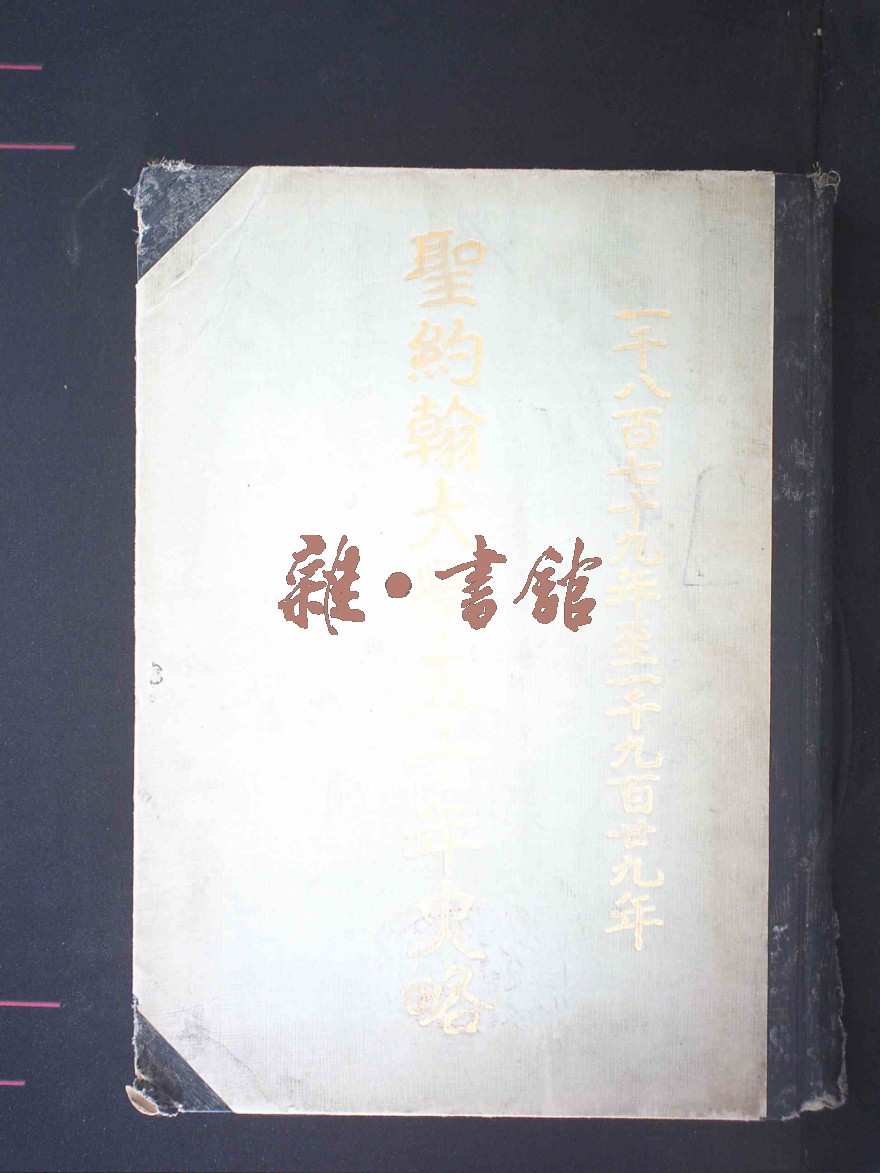 一千八百七十九年至一千九百廿九年
聖約翰大學五十年史略
雜·書館